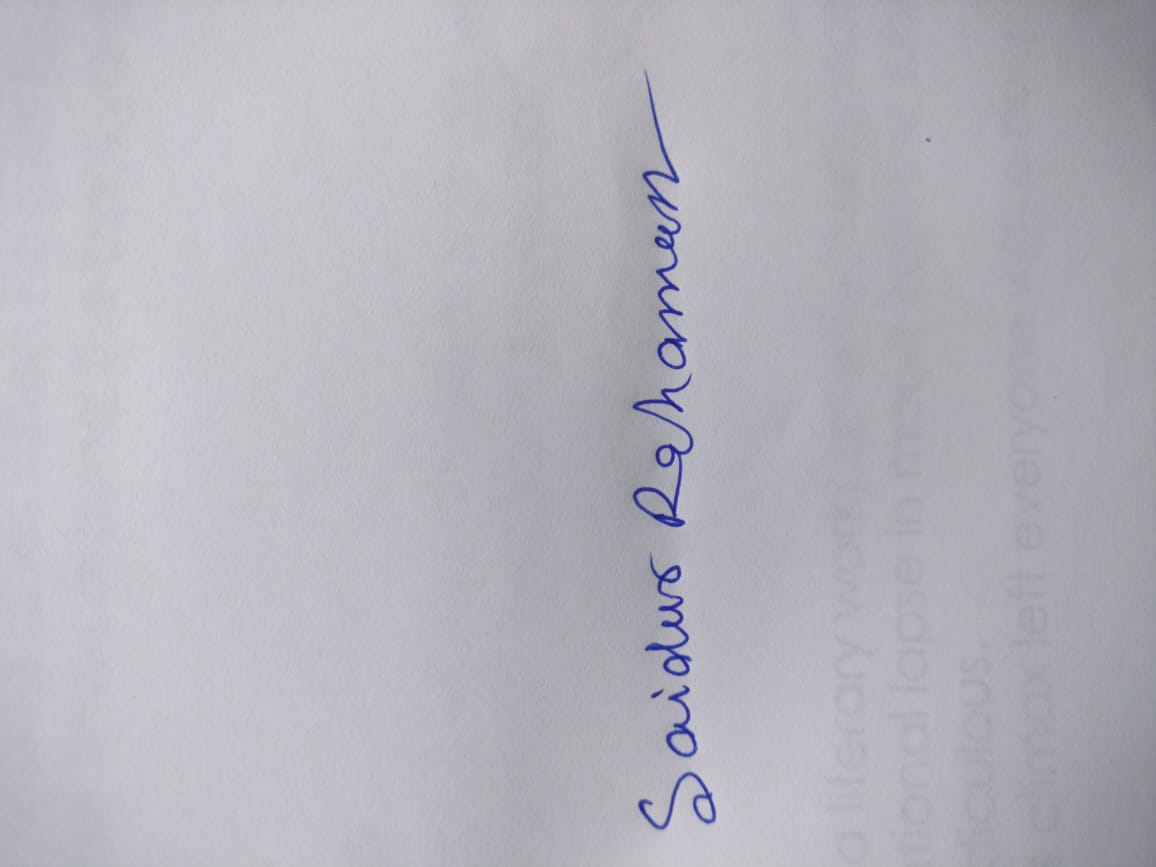 Saidur Rahaman
a literary work
tional lapse in
diculous.
climax left everyon